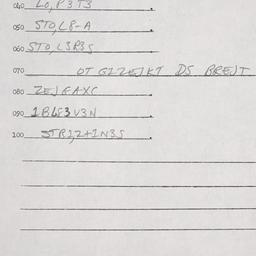 040 LO, P3T3.
050 STO, L8-A
060 STO, L3R3S
070 OT GIZZEJKT DS BREJT
080 ZEJGAXC
090 1BLS3V3N
100 STR1,2+1N3S